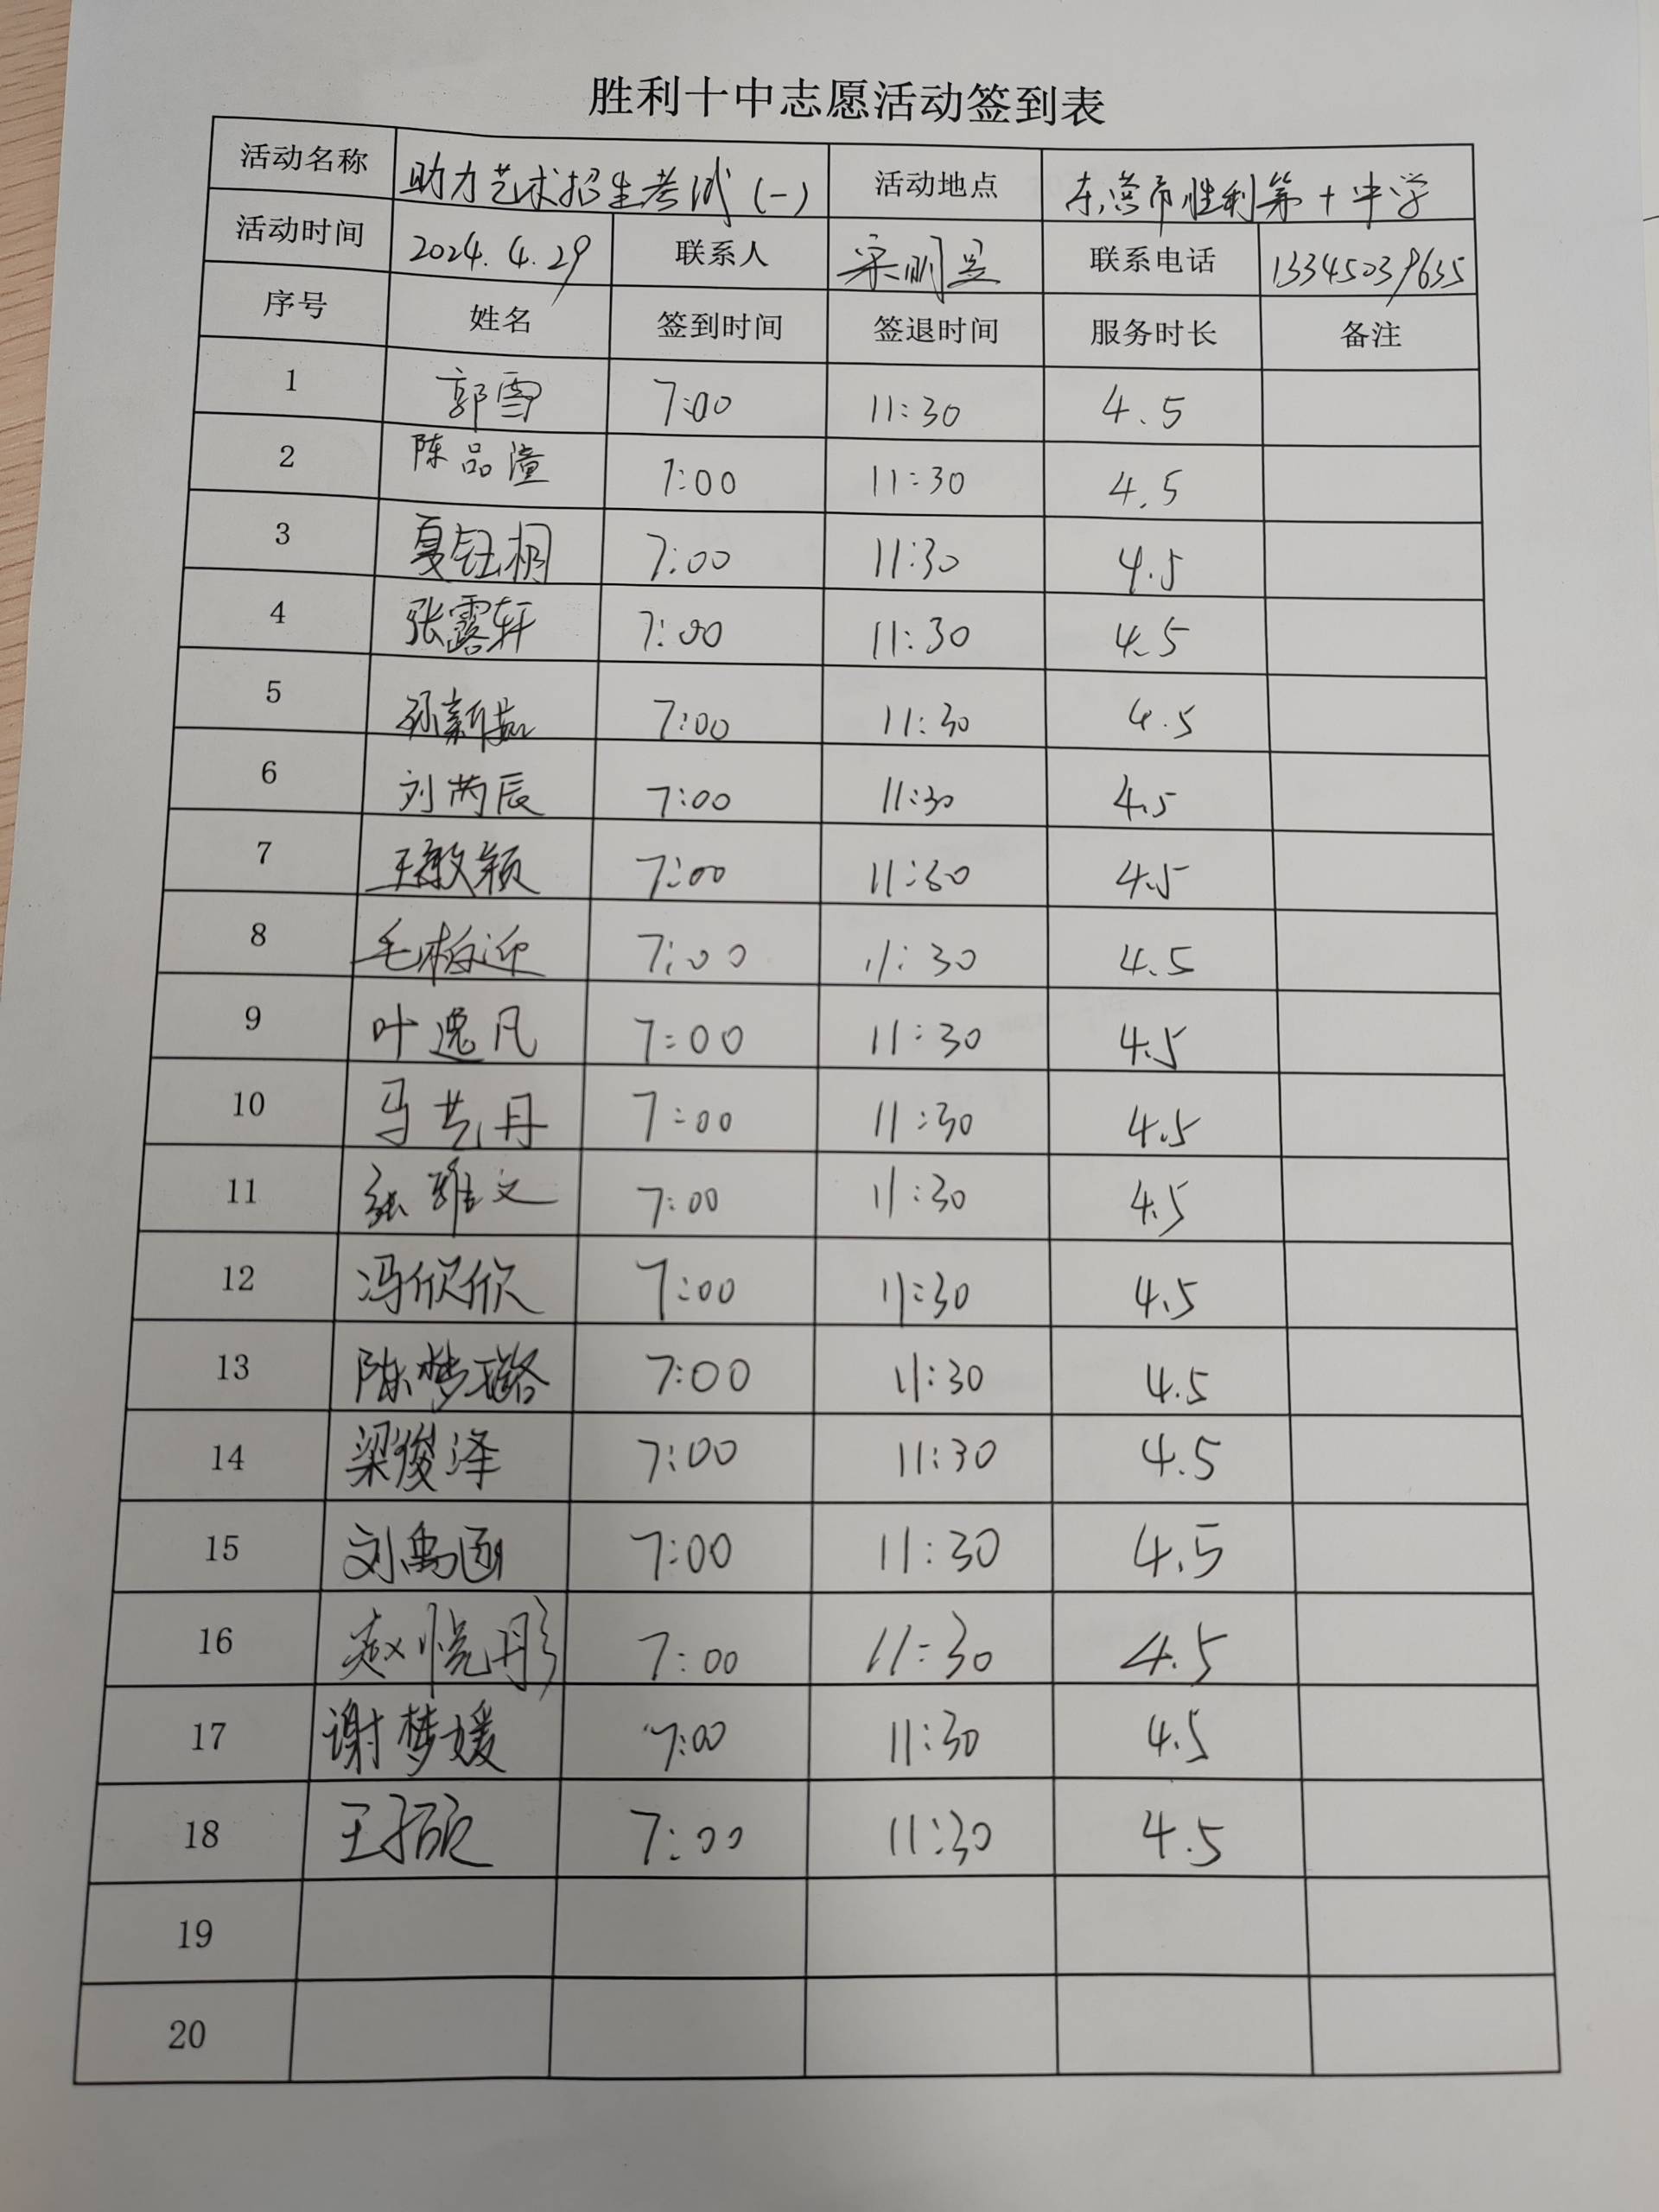 胜利十中志愿活动签到表
活动名称 助力艺术招生考试(一) 活动地点 东营市胜利第十中学
活动时间 2024.4.29 联系人 宋明昱 联系电话 13345039635
序号 姓名 签到时间 签退时间 服务时长 备注
1 郭雪 7:00 11:30 4.5
2 陈品潼 7:00 11:30 4.5
3 夏钰桐 7:00 11:30 4.5
4 张露轩 7:00 11:30 4.5
5 孙新茹 7:00 11:30 4.5
6 刘芮辰 7:00 11:30 4.5
7 王敬颖 7:00 11:30 4.5
8 7:00 11:30 4.5
9 叶逸凡 7:00 11:30 4.5
10 马艺丹 7:00 11:30 4.5
11 张雅文 7:00 11:30 4.5
12 冯欣欣 7:00 11:30 4.5
13 陈梦璐 7:00 11:30 4.5
14 梁俊泽 7:00 11:30 4.5
15 刘禹函 7:00 11:30 4.5
16 赵悦彤 7:00 11:30 4.5
17 谢梦媛 7:00 11:30 4.5
18 王子硕 7:00 11:30 4.5
19
20